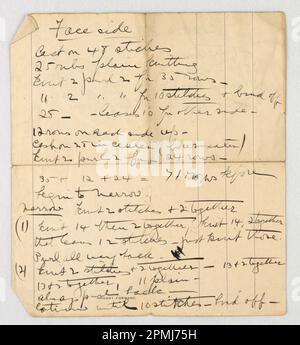 Face side
Cast on 48 stitches
25 ribs plain knitting
Knit 2 purl 2 for 35 rows
" 2 " " for 10 stitches & bind off
25 — leaves 10 for other side —
12 rows on each side up —
Cast on 25 in center
Knit 2 purl 2 for rows —
35 + 12 + 24 = 71 rows before
begin to narrow
narrow Knit 2 stitches & 2 together
(1) Knit 14 then 2 together, Knit 14, 2 together
that leaves 12 stitches just knit those
Purl all way back.
(2) Knit 2 stitches & 2 together — 13 & 2 together
13 & 2 together, 11 plain —
always purl back
until 10 stitches — bind off —
alamy
Image ID: 2PMJ75H
www.alamy.com